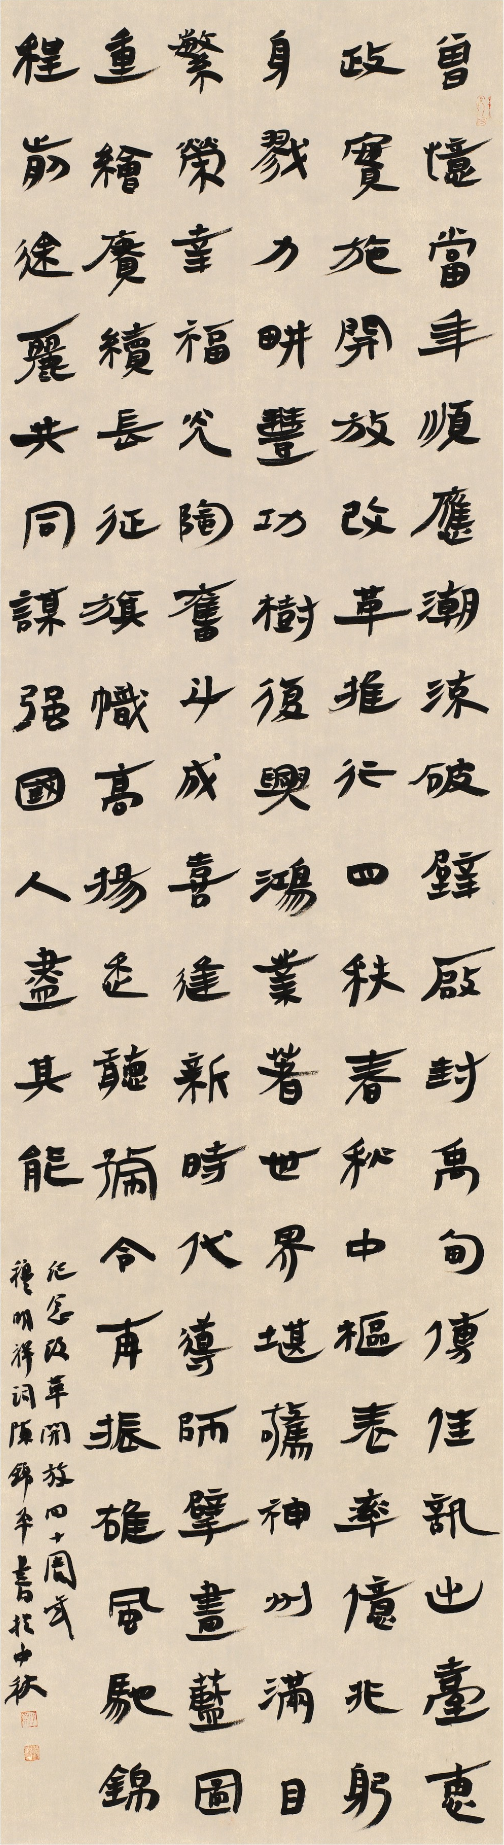 曾憶當年順應潮流破壁啟封禹甸傳佳訊出臺惠
政實施開放改革推行四秩春秋中樞表率億兆躬
身戮力畊豐功樹復興鴻業著世界堪驚神州滿目
繁榮幸福光陶奮斗成喜逢新時代導師擘畫藍圖
重繪賡續長征旗幟高揚悉聽號令再振雄風馳錦
程前途麗共同謀强國人盡其能
紀念改革開放四十周年
穆明祥詞陳錦年書於中秋